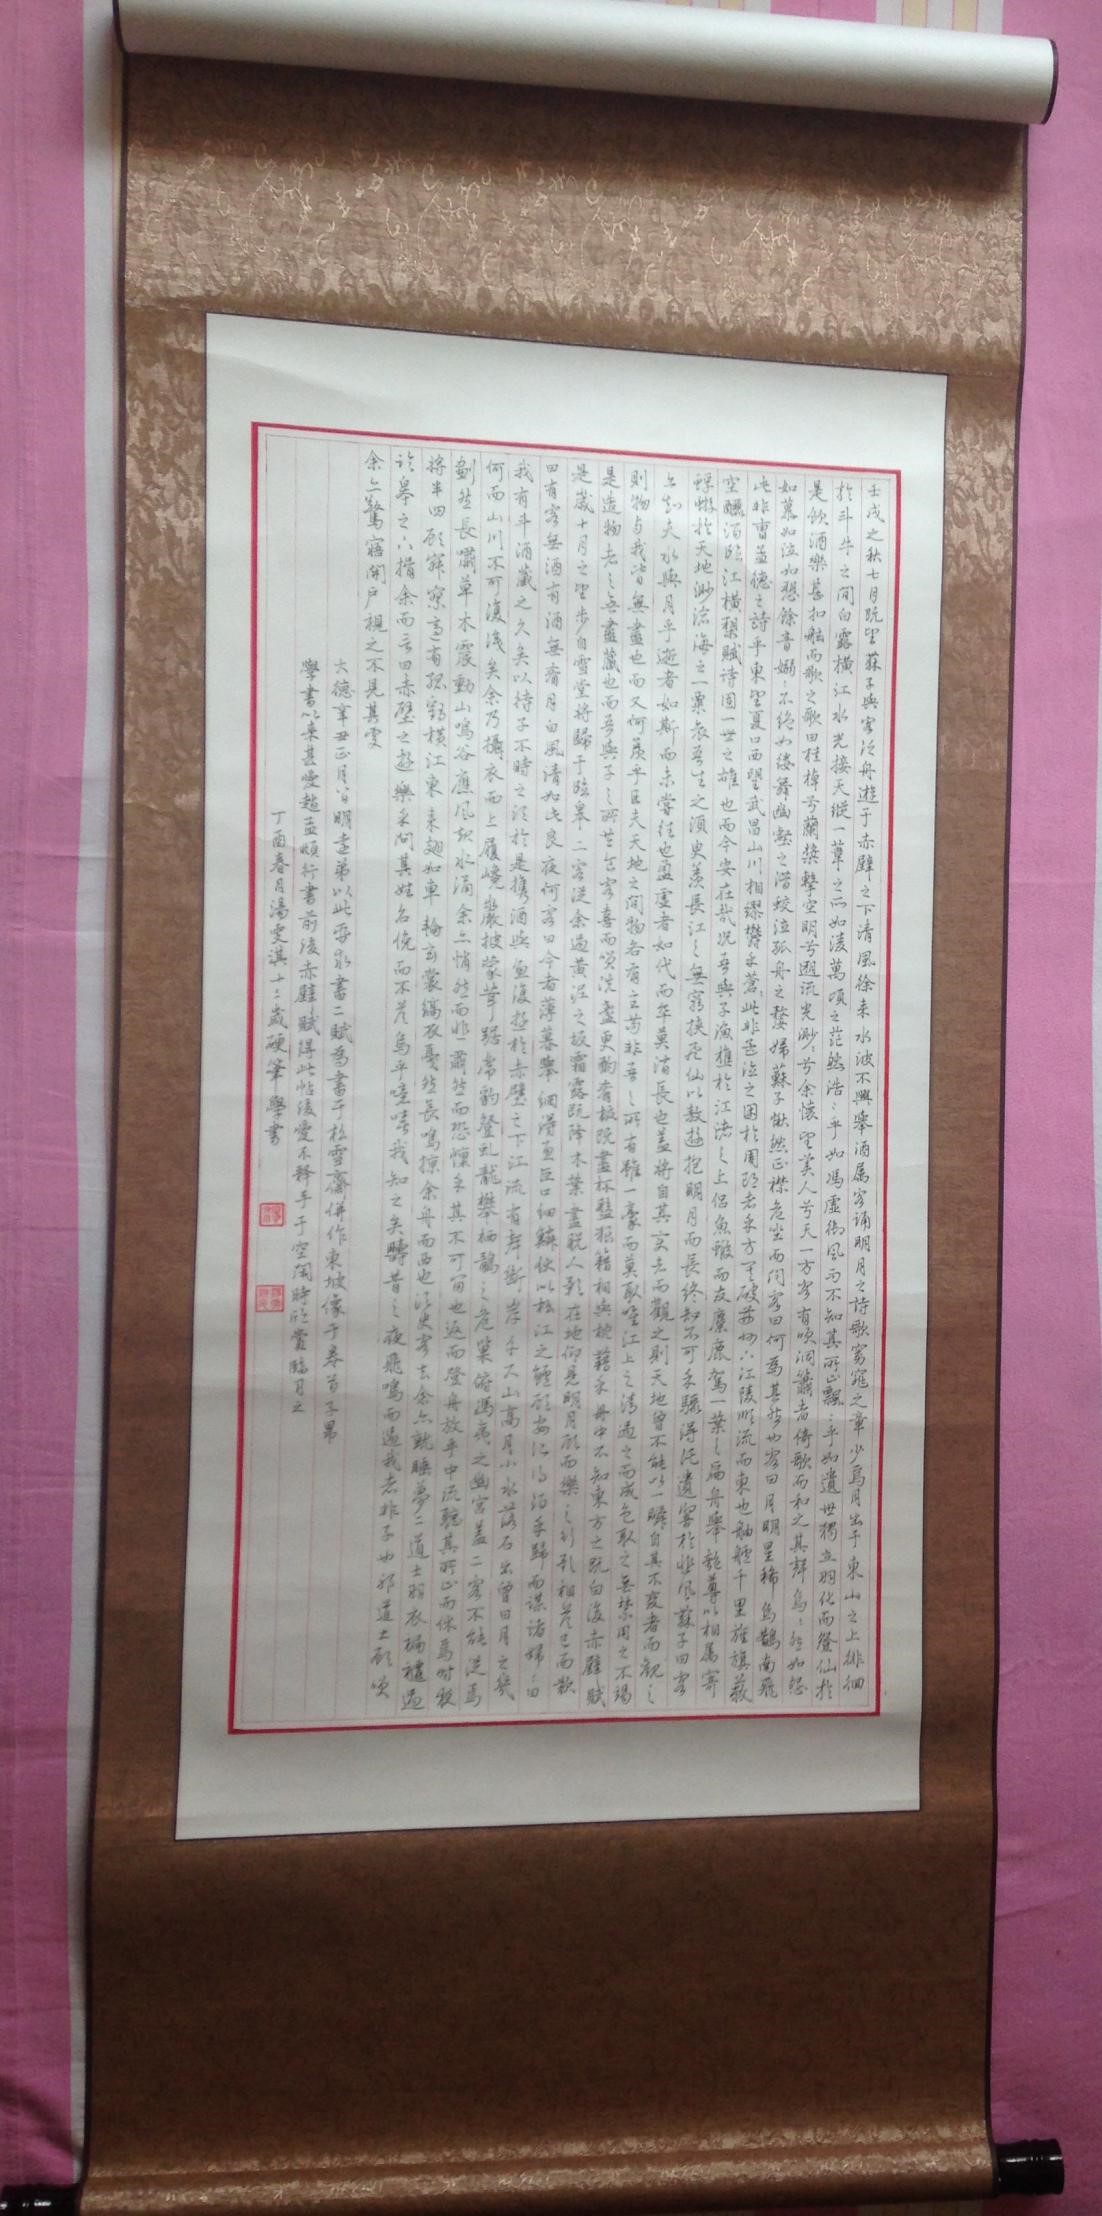 壬戌之秋七月既望蘇子與客泛舟遊于赤壁之下清風徐来水波不興舉酒属客誦明月之詩歌窈窕之章少焉月出于東山之上徘徊
於斗牛之間白露横江水光接天縱一葦之所如淩萬頃之茫然浩々乎如馮虚御風而不知其所止飄々乎如遺世獨立羽化而登仙於
是飲酒樂甚扣舷而歌之歌曰桂棹兮蘭槳擊空明兮遡流光渺兮余懷望美人兮天一方客有吹洞簫者倚歌而和之其聲烏々然如怨
如慕如泣如愬餘音嫋々不絶如縷舞幽壑之潜蛟泣孤舟之嫠婦蘇子愀然正襟危坐而問客曰何為其然也客曰月明星稀烏鵲南飛
此非曹孟德之詩乎東望夏口西望武昌山川相繆欝乎蒼々此非孟德之困於周郎者乎方其破荊州下江陵順流而東也舳艫千里旌旗蔽
空釃酒臨江横槊賦詩固一世之雄也而今安在哉况吾與子漁樵於江渚之上侣魚鰕而友麋鹿駕一葉之扁舟舉匏尊以相属寄
蜉蝣於天地渺滄海之一粟哀吾生之須臾羨長江之無窮挾飛仙以敖遊抱明月而長終知不可乎驟得託遺響於悲風蘇子曰客
亦知夫水與月乎逝者如斯而未嘗往也盈虚者如代而卒莫消長也盖將自其变者而觀之則天地曾不能以一瞬自其不变者而觀之
則物與我皆無盡也而又何羨乎且夫天地之間物各有主苟非吾之所有雖一豪而莫取唯江上之清
是造物者之無盡藏也而吾與子之所共食客喜而笑洗盞更酌肴核既盡杯盤狼籍相與枕藉乎舟中不知東方之既白後赤壁賦
是歲十月之望步自雪堂將歸于臨皋二客從余過黄泥之坂霜露既降木葉盡脱人影在地仰見明月顧而樂之行歌相答已而歎
曰有客無酒有酒無肴月白風清如此良夜何客曰今者薄暮舉網得魚巨口細鱗状似松江之鱸顧安所得酒乎歸而謀諸婦々曰
我有斗酒藏之久矣以待子不時之須於是攜酒與魚復遊於赤壁之下江流有聲断岸千尺山高月小水落石出曾日月之幾
何而山川不可復識矣余乃攝衣而上履巉巖披蒙茸踞虎豹登虬龍攀栖鶻之危巢俯馮夷之幽宮盖二客不能從焉
劃然長嘯草木震動山鳴谷應風起水涌余亦悄然而悲肅然而恐懍乎其不可留也返而登舟放乎中流聽其所止而休焉時夜
將半四顧寂寥適有孤鶴横江東来翅如車輪玄裳縞衣戛然長鳴掠余舟而西也須臾客去余亦就睡夢二道士羽衣翩躚過
臨皋之下揖余而言曰赤壁之遊樂乎問其姓名俛而不答烏乎噫嘻我知之矣疇昔之夜飛鳴而過我者非子也邪道士顧笑
余亦驚寤開户視之不見其處
大德辛丑正月八日明遠弟以此紙求書二賦為書于松雪齋併作東坡像于卷首子昂
學書以来甚愛趙孟頫行書前後赤壁賦得此帖後愛不釋手于空閑時欣賞臨習之
丁酉春月湯雯淇十二歲硬筆學書